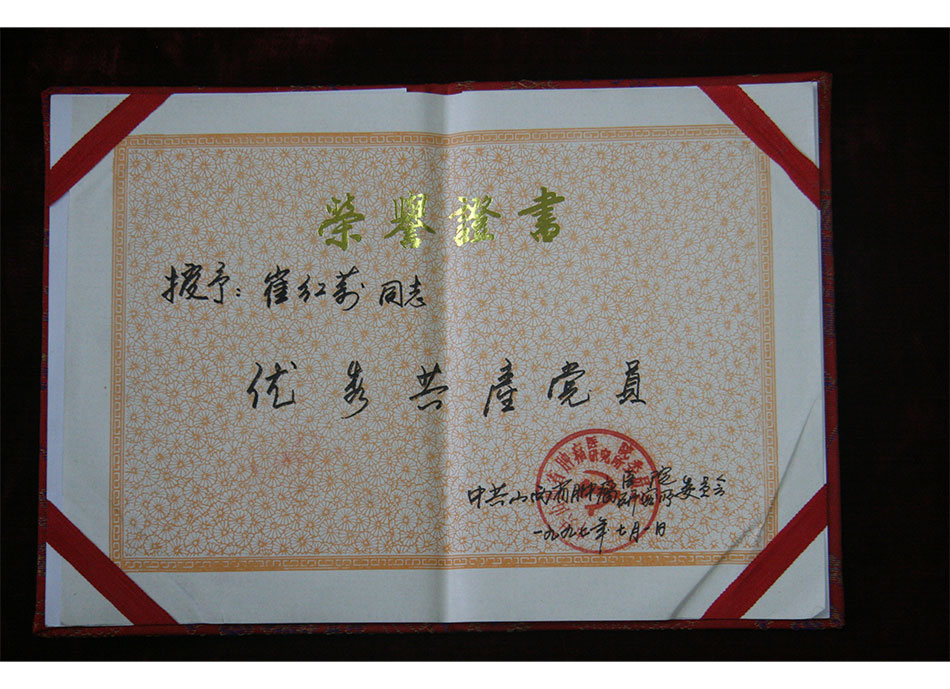 榮譽證書
授予：崔红莉同志
优秀共產党員
中共山西省肿瘤医院研究所委员会
一九九七年七月一日